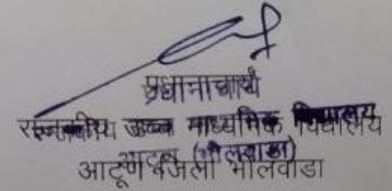 प्रधानाचार्य
राजकीय उच्च माध्यमिक विद्यालय
आटूण (भीलवाड़ा)
आटूण भीलवाडा